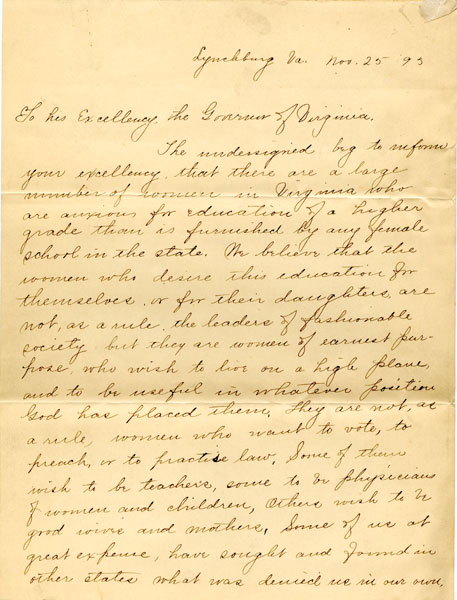 Lynchburg Va. Nov. 25 '93
To his Excellency, the Governor of Virginia.
The undersigned beg to inform
your excellency, that there are a large
number of women in Virginia who
are anxious for education of a higher
grade than is furnished by any female
school in the state. We believe that the
women who desire this education for
themselves, or for their daughters, are
not, as a rule, the leaders of fashionable
society, but they are women of earnest pur-
pose, who wish to live on a high plane,
and to be useful in whatever position
God has placed them. They are not, as
a rule, women who want to vote, to
preach, or to practise law, Some of them
wish to be teachers, some to be physicians
of women and children, Others wish to be
good wives and mothers, Some of us at
great expense, have sought and found in
other states what was denied us in our own.